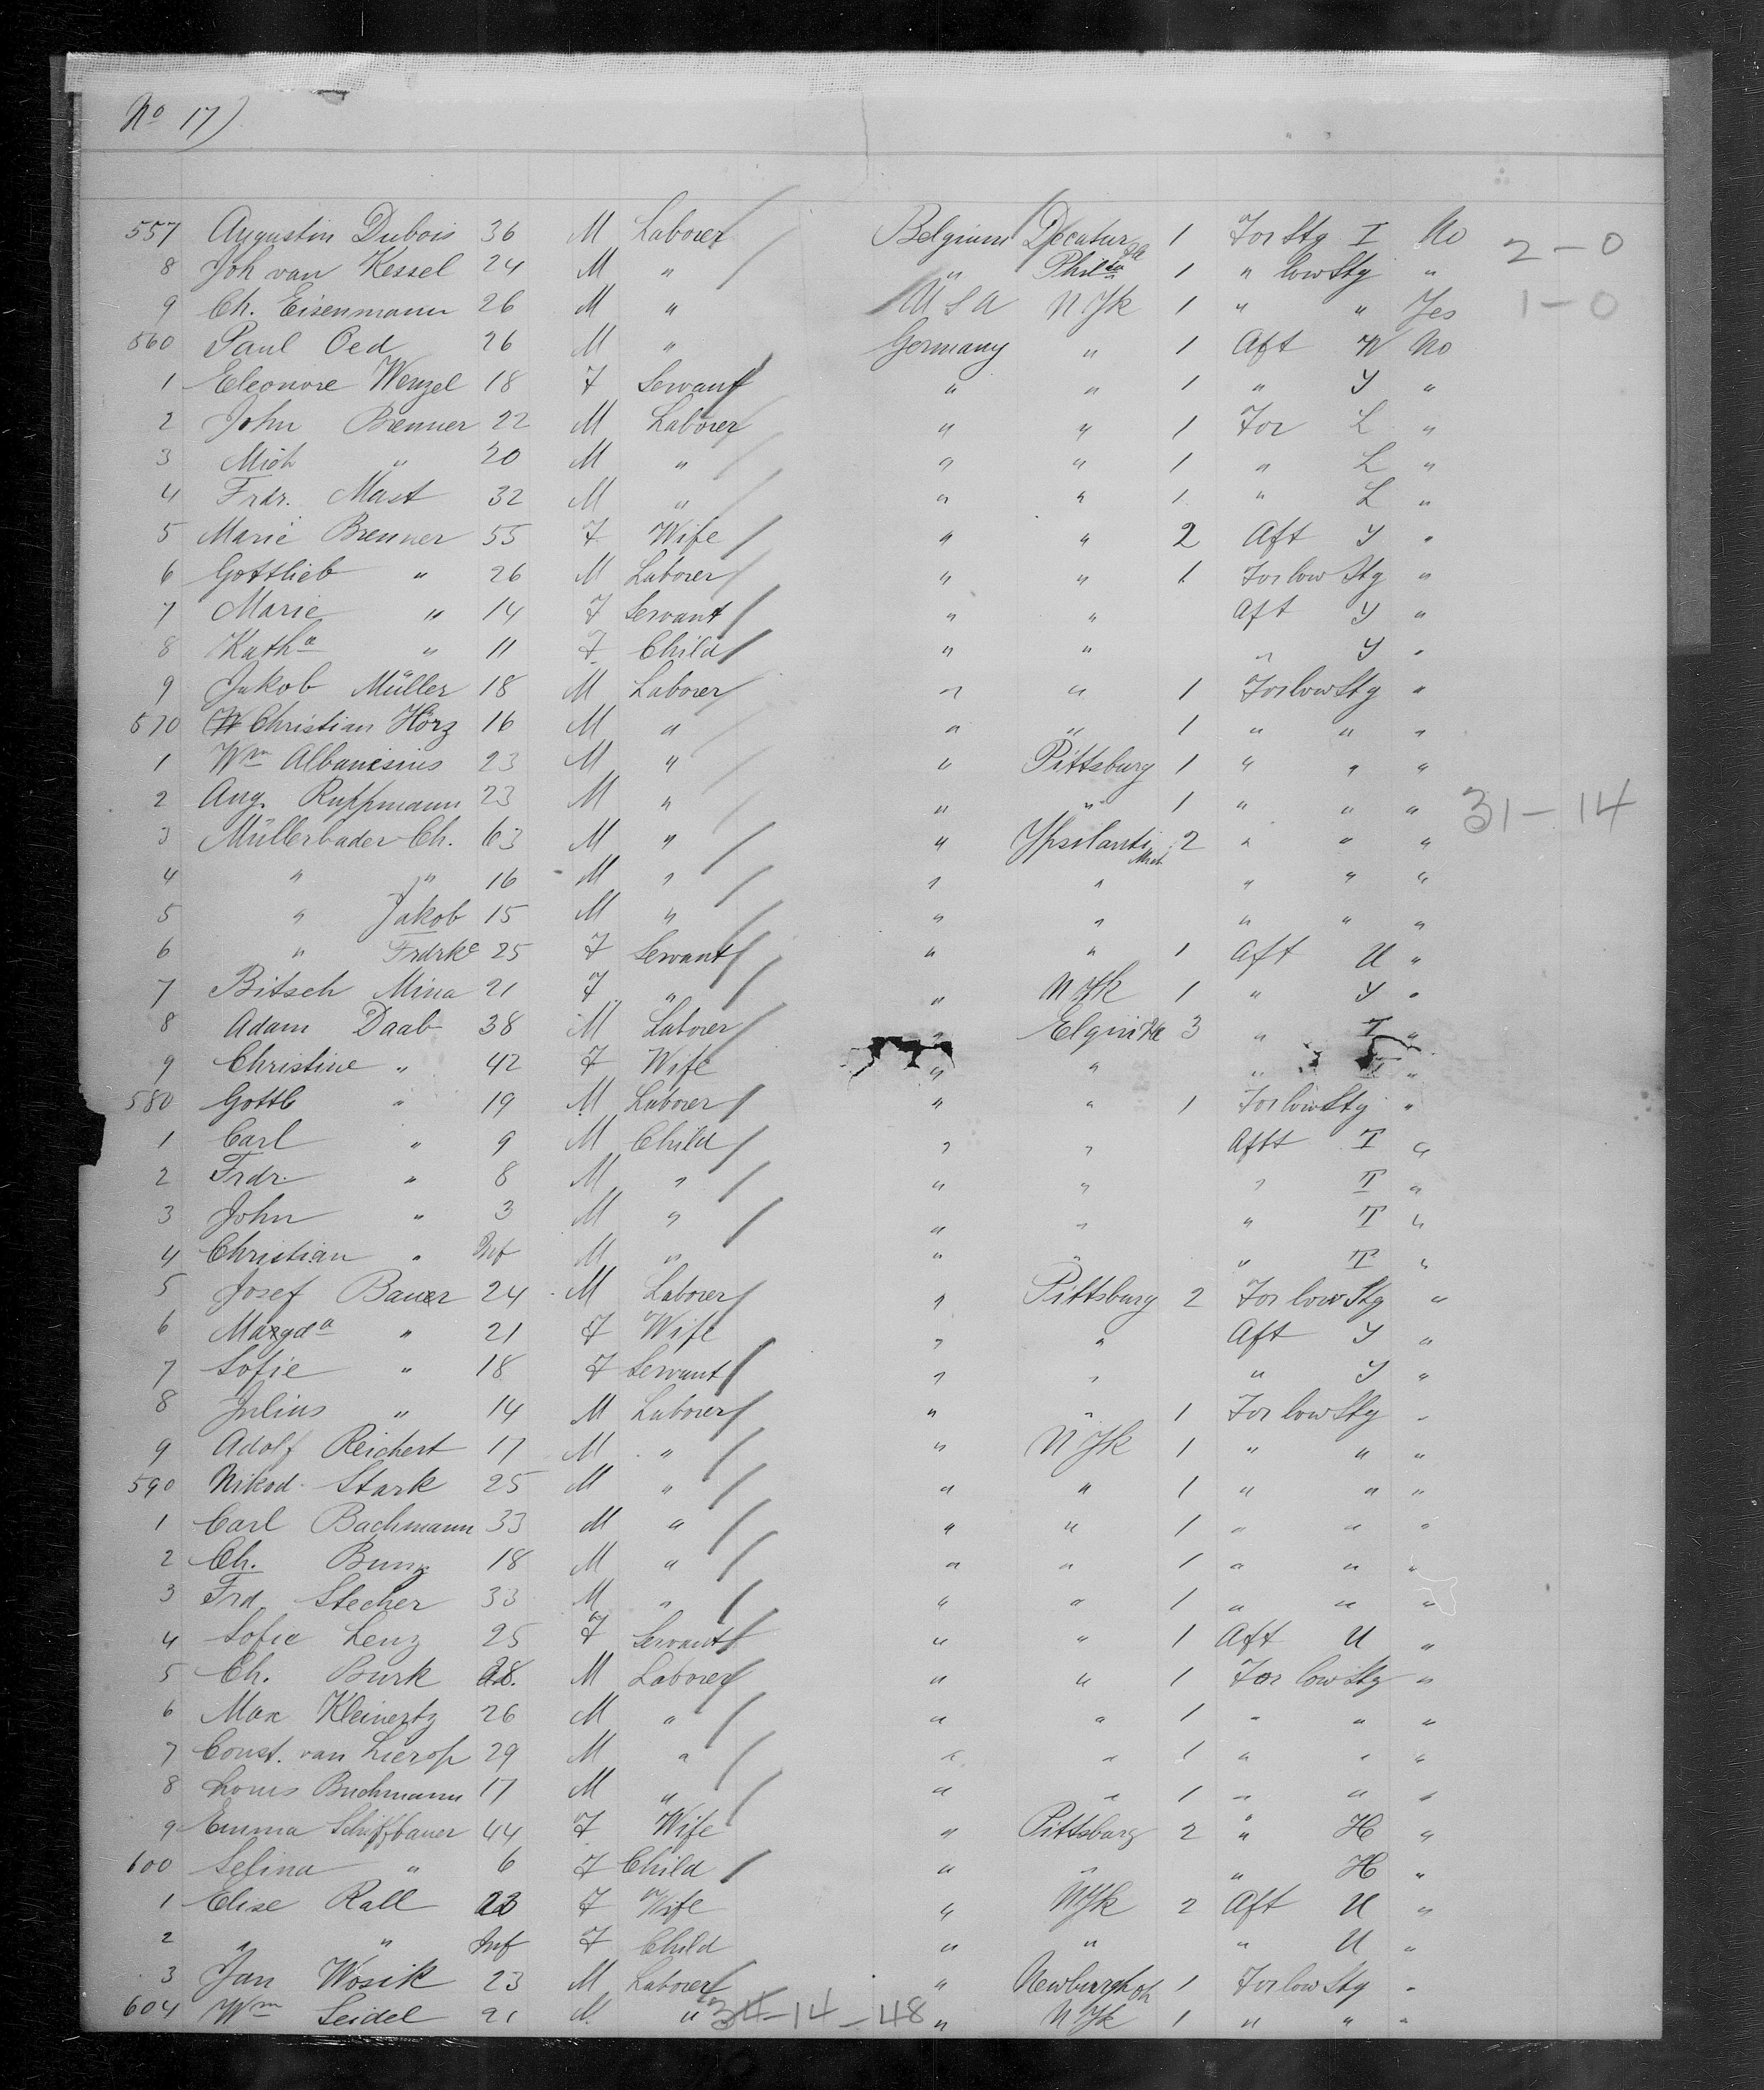 No 17)
557 Augustin Dubois 36 M Laborer Belgium Decatur 1 For Stg I No 2-0
8 Joh van Kessel 24 M " " Phila 1 " low Stg "
9 Ch. Eisenmann 26 M " USA N Yk 1 " " Yes 1-0
560 Paul Oed 26 M " Germany " 1 Aft W No
1 Eleonore Wenzel 18 F Servant " " 1 " Y "
2 John Brenner 22 M Laborer " " 1 For L "
3 Mich " 20 M " " " 1 " L "
4 Frdr. Mast 32 M " " " 1 " L "
5 Marie Brenner 55 F Wife " " 2 Aft Y "
6 Gottlieb " 26 M Laborer " " 1 For low Stg "
7 Marie " 14 F Servant " " Aft Y "
8 Katha " 11 F Child " " " Y "
9 Jakob Müller 18 M Laborer " " 1 For low Stg "
570 Christian Horz 16 M " " " 1 " " "
1 Wm Albanesius 23 M " " Pittsburg 1 " " "
2 Aug. Ruffmann 23 M " " " 1 " " " 31-14
3 Müllerbader Ch. 63 M " " Ypsilanti Mich 2 " " "
4 " " 16 M " " " " " "
5 " Jakob 15 M " " " " " "
6 " Frdrke 25 F Servant " " 1 Aft U "
7 Bitsch Mina 21 F " " N Yk 1 " Y "
8 Adam Daab 38 M Laborer " Elgin 3 " I "
9 Christine " 42 F Wife " " " "
580 Gottlb " 19 M Laborer " " 1 For low Stg "
1 Carl " 9 M Child " " Aftt T "
2 Frdr. " 8 M " " " " T "
3 John " 3 M " " " " T "
4 Christian " Inf M " " " " T "
5 Josef Bauer 24 M Laborer " Pittsburg 2 For low Stg "
6 Magda " 21 F Wife " " Aft Y "
7 Sofie " 18 F Servant " " " Y "
8 Julius " 14 M Laborer " " 1 For low Stg "
9 Adolf Reichert 17 M " " N Yk 1 " " "
590 Nikod. Stark 25 M " " " 1 " " "
1 Carl Bachmann 33 M " " " 1 " " "
2 Ch. Bunz 18 M " " " 1 " " "
3 Frd. Stecher 33 M " " " 1 " " "
4 Sofie Lenz 25 F Servant " " 1 Aft U "
5 Ch. Burk 28. M Laborer " " 1 For low Stg "
6 Max Kleinertz 26 M " " " 1 " " "
7 Const. van Lierop 29 M " " " 1 " " "
8 Louis Buchmann 17 M " " " 1 " " "
9 Emma Schiffbauer 44 F Wife " Pittsburg 2 " H "
600 Selina " 6 F Child " " " H "
1 Elise Rall 23 F Wife " N Yk 2 Aft U "
2 " " Inf F Child " " " U "
3 Jan Wosik 23 M Laborer " Newburgh Oh 1 For low Stg "
604 Wm Seidel 21 M " 34-14-48 " N Yk 1 " " "